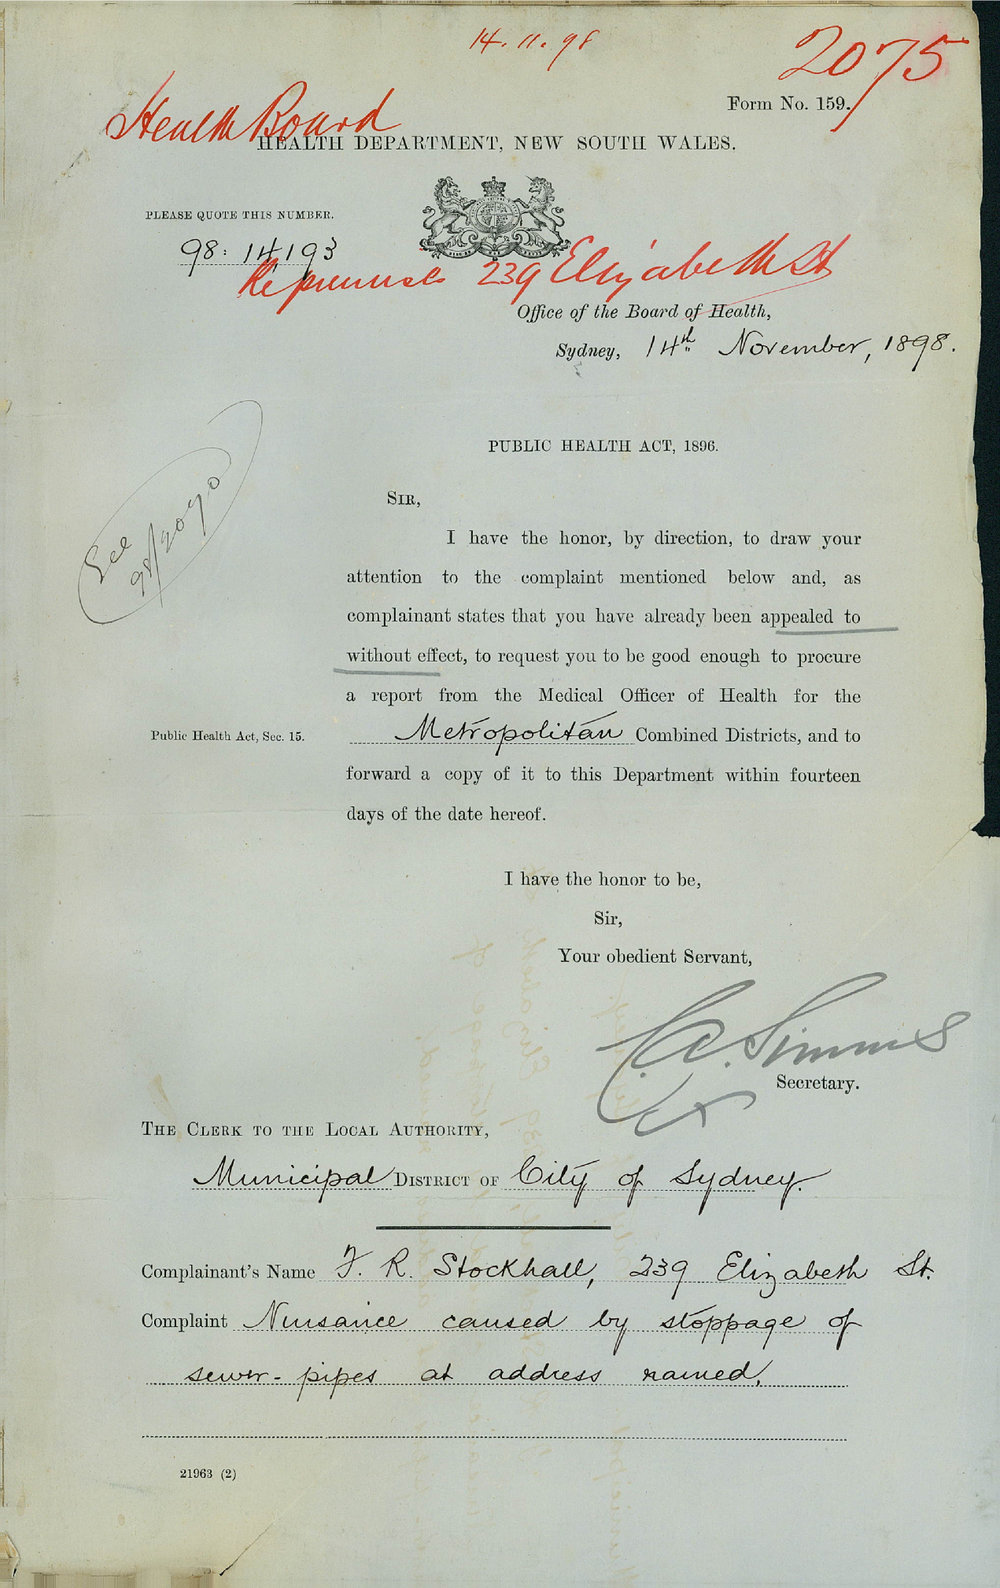 14.11.98
2075
Form No. 159.
Health Board
HEALTH DEPARTMENT, NEW SOUTH WALES.
PLEASE QUOTE THIS NUMBER.
98: 14193
239 Elizabeth St
Office of the Board of Health,
Sydney, 14th November, 1898.
PUBLIC HEALTH ACT, 1896.
See
98/2070
SIR,
I have the honor, by direction, to draw your
attention to the complaint mentioned below and, as
complainant states that you have already been appealed to
without effect, to request you to be good enough to procure
a report from the Medical Officer of Health for the
Public Health Act, Sec. 15.
Metropolitan Combined Districts, and to
forward a copy of it to this Department within fourteen
days of the date hereof.
I have the honor to be,
Sir,
Your obedient Servant,
Simms
Secretary.
THE CLERK TO THE LOCAL AUTHORITY,
Municipal DISTRICT OF City of Sydney.
Complainant's Name F. R. Stockhall, 239 Elizabeth St.
Complaint Nuisance caused by stoppage of
sewer-pipes at address named.
21963 (2)